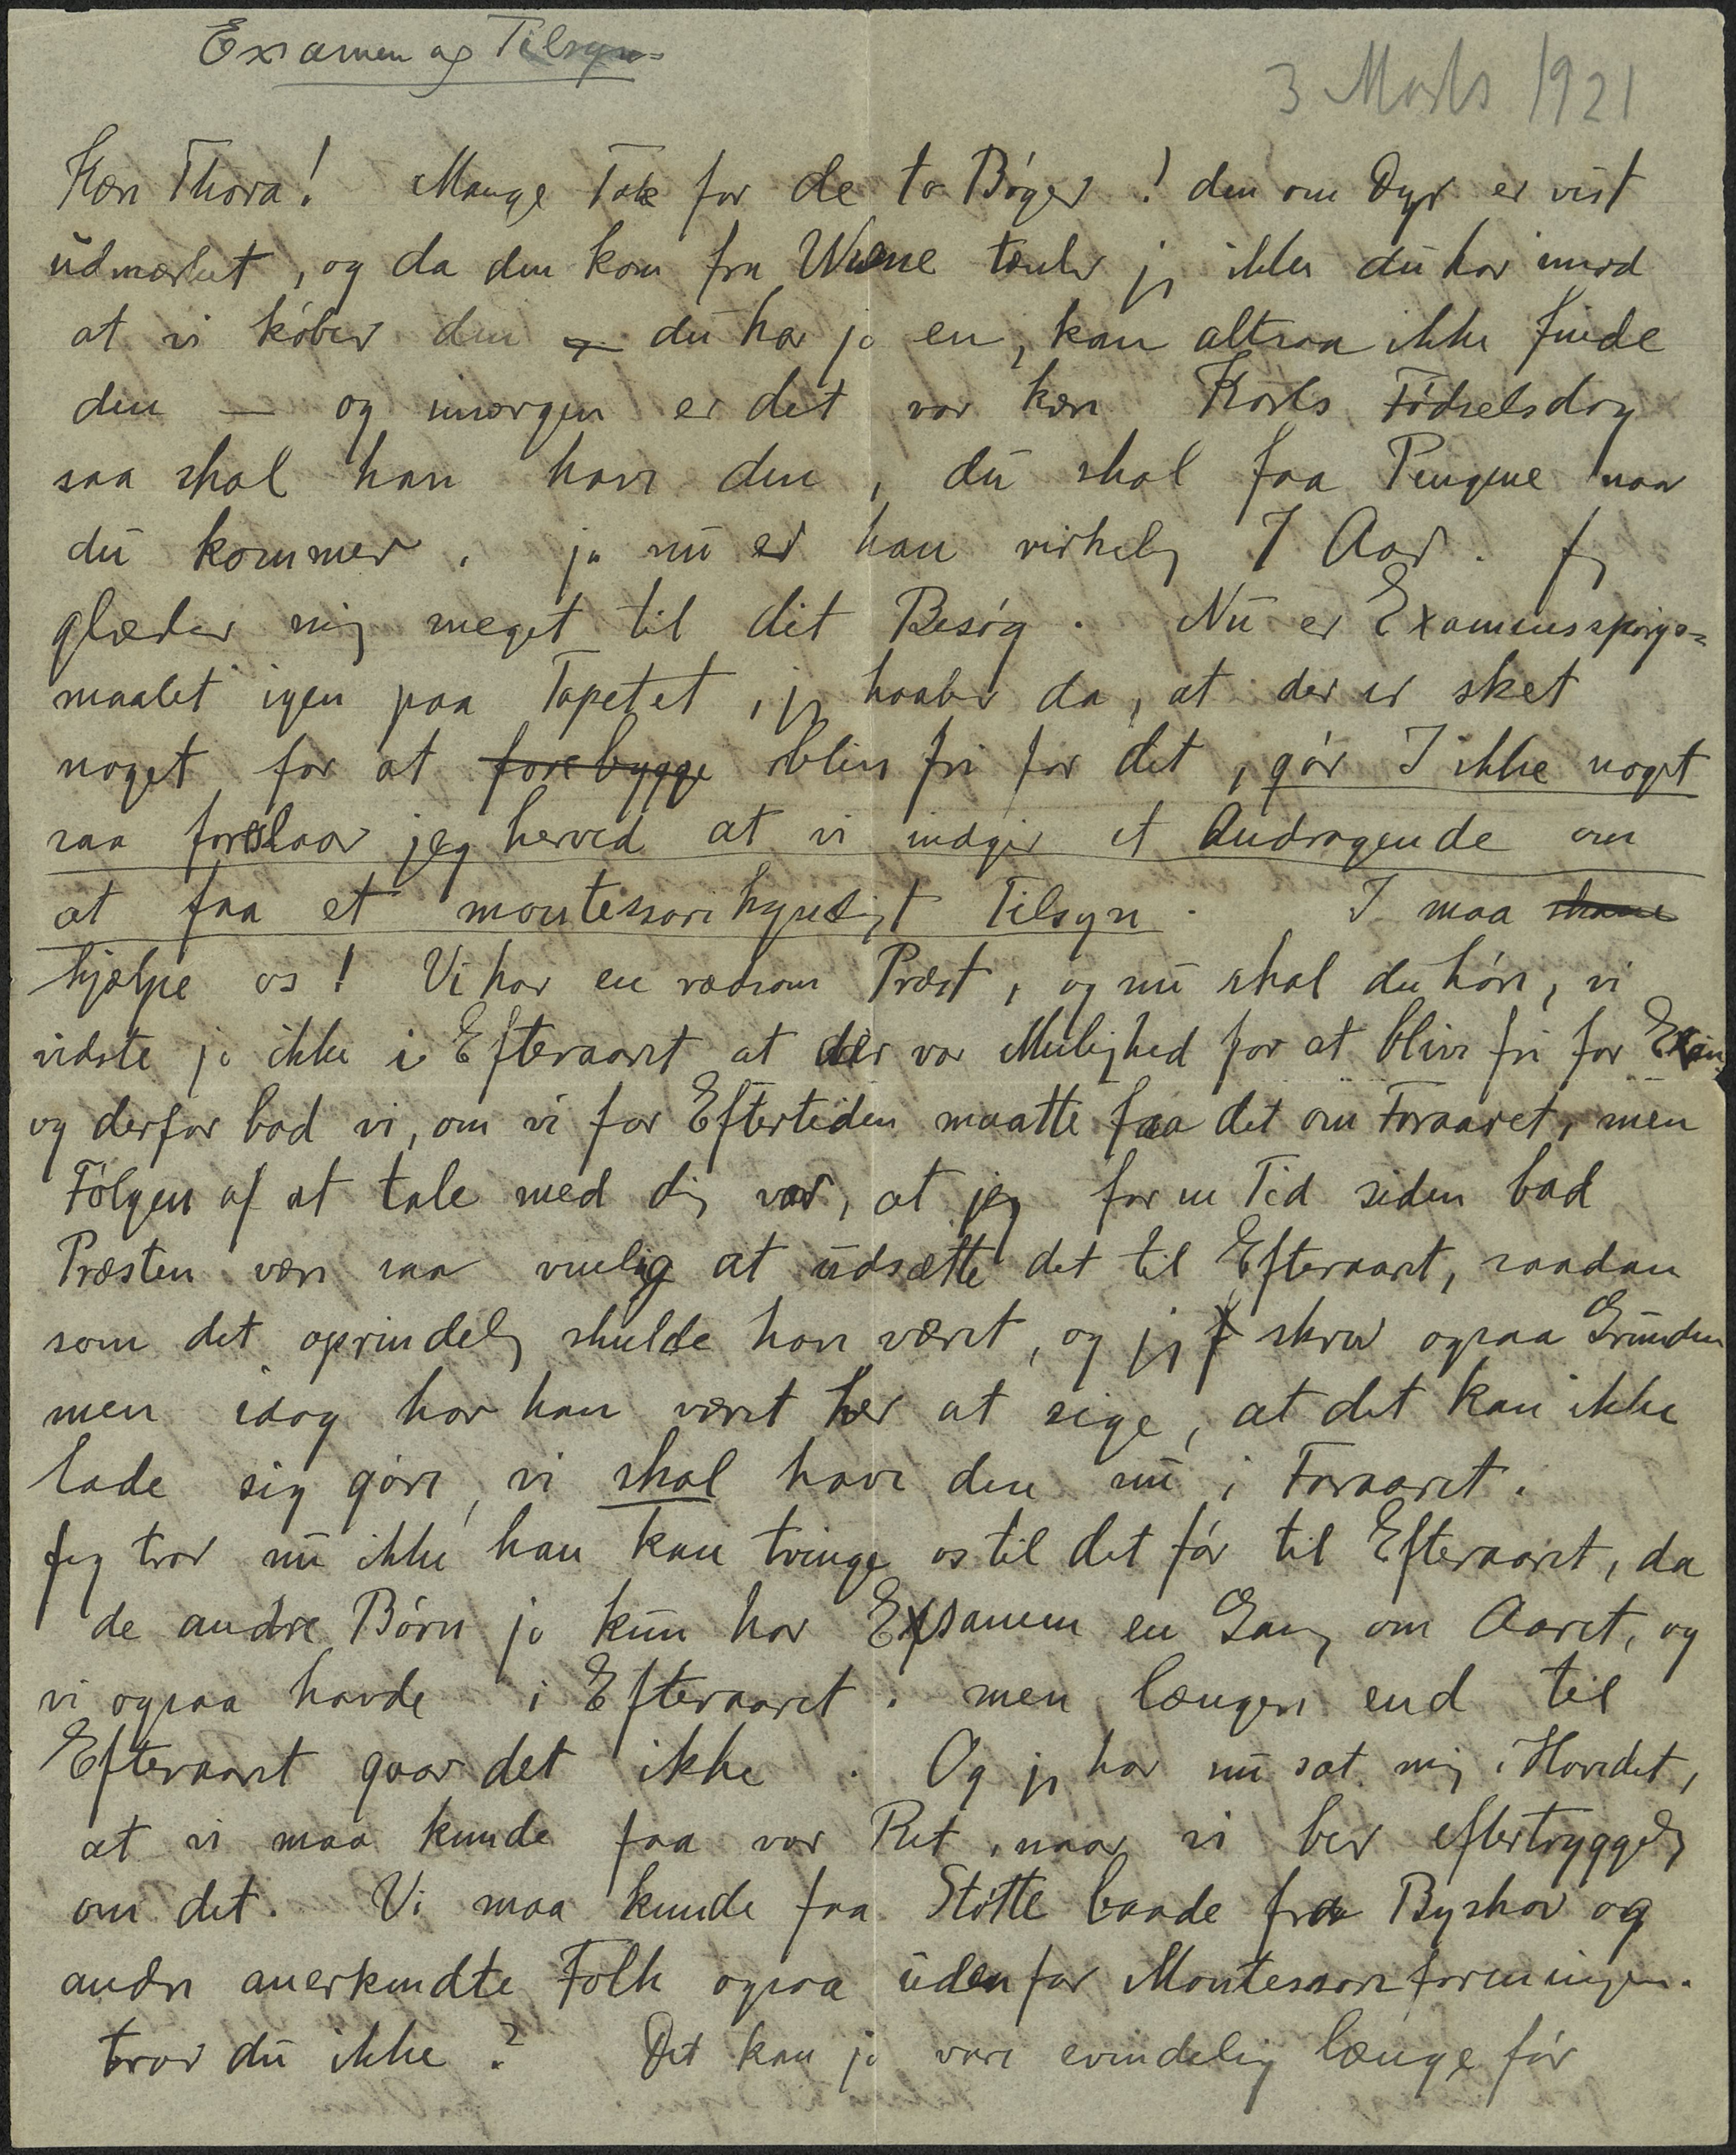 Examen og Tilsyn
3 Marts 1921
Kære Thora! Mange Tak for de to Bøger! den om Dyr er vist
udmærket, og da den kom fra Wiene tænker jeg ikke du har imod
at vi køber den – du har jo en, kan altsaa ikke finde
den – og imorgen er det vor kære Karls Fødselsdag
saa skal han have den, du skal faa Pengene naar
du kommer. ja nu er han virkelig 7 Aar. Jeg
glæder mig meget til dit Besøg. Nu er Examensspørgs=
maalet igen paa Tapetet, jeg haaber da, at der er sket
noget for at forebygge blive fri for det, gør I ikke noget
saa foreslaar jeg herved at vi indgir et Andragende om
at faa et montessorikyndigt Tilsyn. I maa
hjælpe os! Vi har en rædsom Præst, og nu skal du høre, vi
vidste jo ikke i Efteraaret at der var Mulighed for at blive fri for Exam
og derfor bad vi, om vi for Eftertiden maatte faa det om Foraaret, men
Følgen af at tale med dig var, at jeg for en Tid siden bad
Præsten være saa venlig at udsætte det til Efteraaret, saadan
som det oprindelig skulde have været, og jeg skrev ogsaa Grunden
men idag har han været her at sige, at det kan ikke
lade sig gøre, vi skal have den nu i Foraaret.
Jeg tror nu ikke han kan tvinge os til det før til Efteraaret, da
de andre Børn jo kun har Exsamen en Gang om Aaret, og
vi ogsaa havde i Efteraaret. men længere end til
Efteraaret gaar det ikke. Og jeg har nu sat mig i Hovedet,
at vi maa kunde faa vor Ret, naar vi ber eftertryggelig
om det. Vi maa kunde faa Støtte baade fra Byskov og
andre anerkendte Folk ogsaa udenfor Montessoriforeningen.
tror du ikke? Det kan jo være evindelig længe før